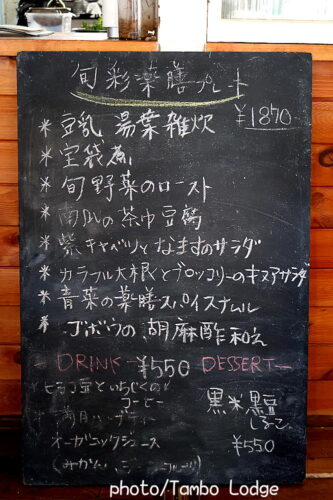 旬彩薬膳プレート
¥1870
* 豆乳 湯葉雑炊
* 宝袋煮
* 旬野菜のロースト
* 南瓜の茶巾豆腐
* 紫キャベツとなますのサラダ
* カラフル大根とブロッコリーのキヌアサラダ
* 青菜の薬膳スパイスナムル
* ゴボウの胡麻酢和え
DRINK ¥550 DESSERT
ヒヨコ豆といちじくの
コーヒー
オーガニックジュース
(みかん
黒米黒豆
しるこ
¥550
photo/Tambo Lodge